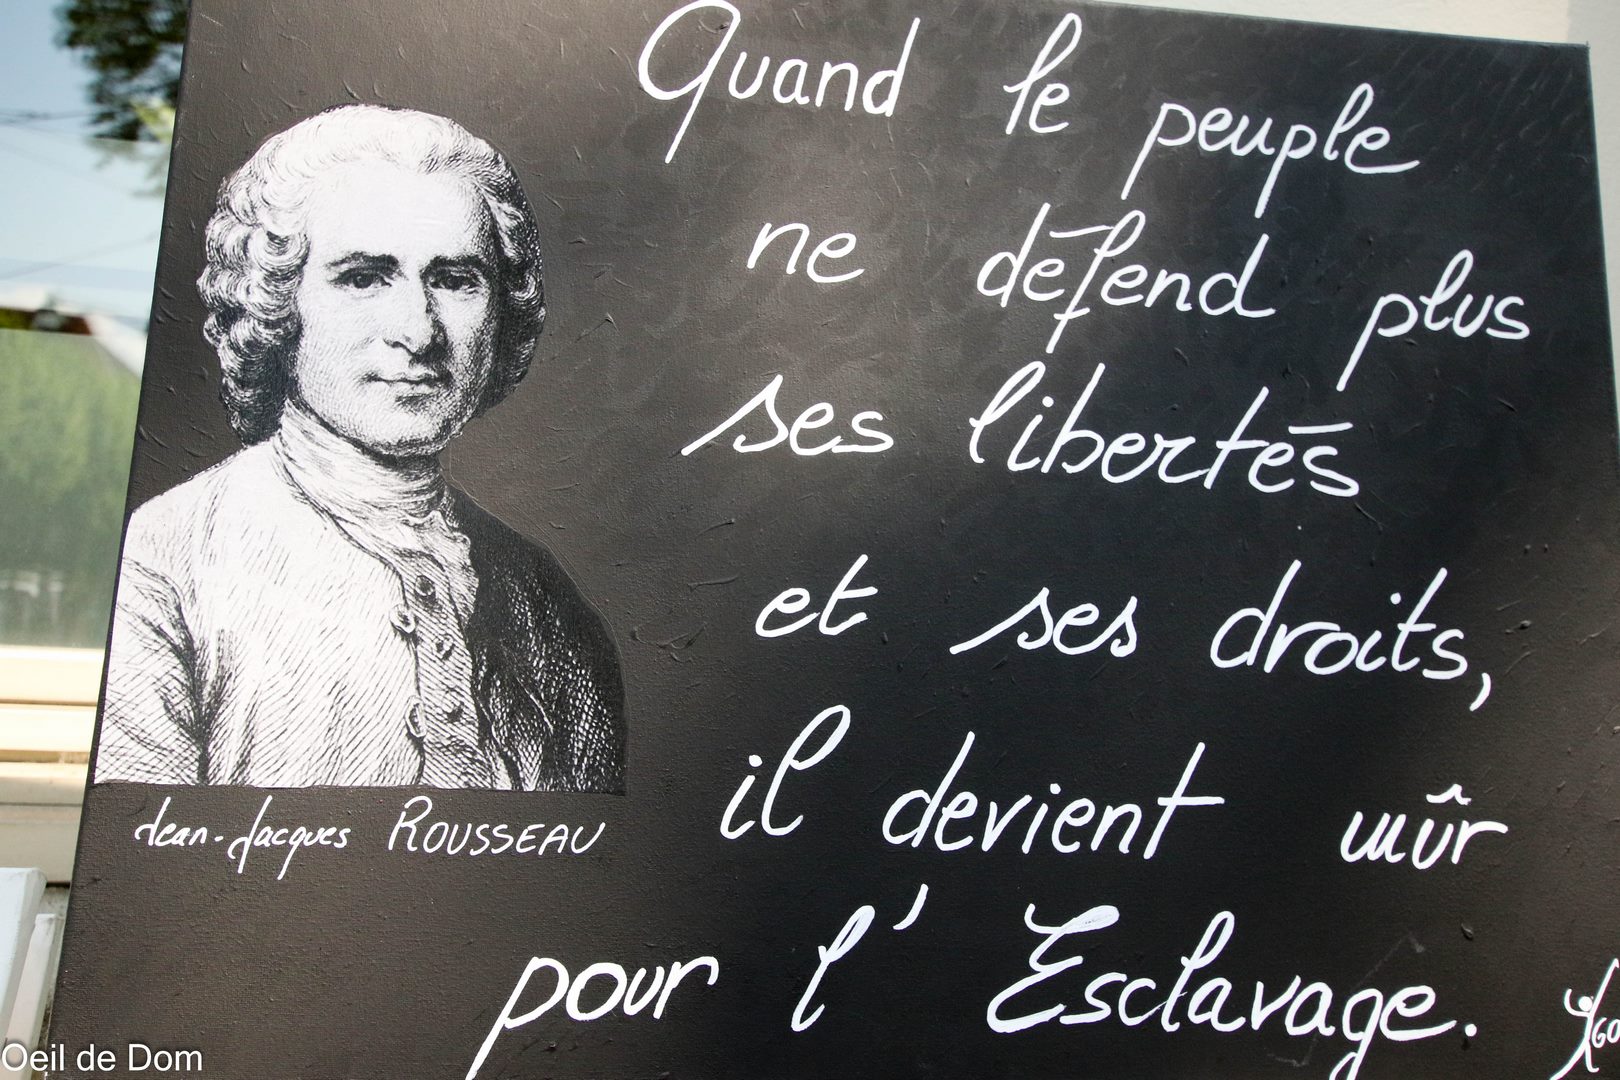 Quand le peuple
ne défend plus
ses libertés
et ses droits,
il devient mûr
pour l'Esclavage.
Jean-Jacques ROUSSEAU
Oeil de Dom